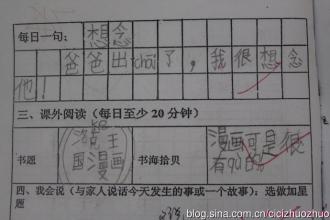 每日一句：想念
爸爸出chāi了，我很想念
他！
三、课外阅读（每日至少 20 分钟）
书题 王国漫画 书海拾贝 漫画可是很有
四、我会说（与家人说话今天发生的事或一个故事）：选做加星
题
blog.sina.com.cn/cicizhuozhuo